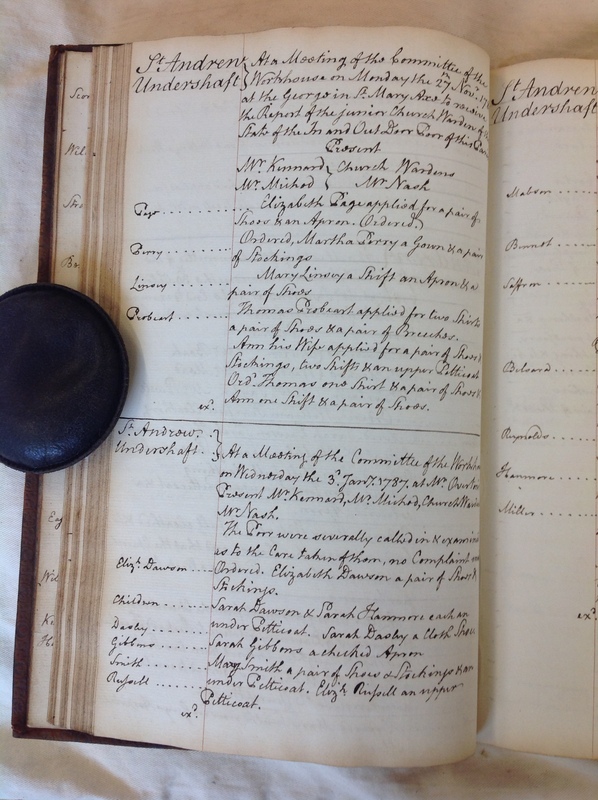 St Andrew
Undershaft
At a Meeting of the Committee of the
Workhouse on Monday the 27th Novr. 17
at the George in St. Mary Axe to receive
the Report of the junior Church Warden of
State of the In and Out Door Poor of this
Present
Mr. Kennard Church Wardens
Mr. Michod Mr Nash
Page Elizabeth Page applied for a pair of
Shoes & an Apron. Ordered.
Perry Ordered, Martha Perry a Gown & a pair
of Stockings
Linsey Mary Linsey a Shift an Apron & a
pair of Shoes
Probeart Thomas Probeart applied for two Shirts
a pair of Shoes & a pair of Breeches.
Ann his Wife applied for a pair of Shoes &
Stockings, two Shifts & an upper Petticoat
Ordd. Thomas one Shirt & a pair of Shoes &
Ann one Shift & a pair of Shoes.
exd.
St. Andrew
Undershaft
At a Meeting of the Committee of the
on Wednesday the 3d. Jany. 1787, at Mr.
Present Mr. Kennard, Mr. Michod, Church
Mr. Nash.
The Poor were severally called in &
as to the Care taken of them, no Complaint
Elizh Dawson Ordered. Elizabeth Dawson a pair of Shoes &
Stockings.
Children Sarah Dawson & Sarah Hanmore each an
Dasby under Petticoat. Sarah Dasby a Cloth
Gibbons Sarah Gibbons a checked Apron
Smith Mary Smith a pair of Shoes & Stockings & an
Russell under Petticoat. Elizh. Russell an upper
Petticoat.
exd.
St Andrew
Undershaft
Mabson
Bennet
Saffron
Belward
Reynolds
Hanmore
Miller
exd.